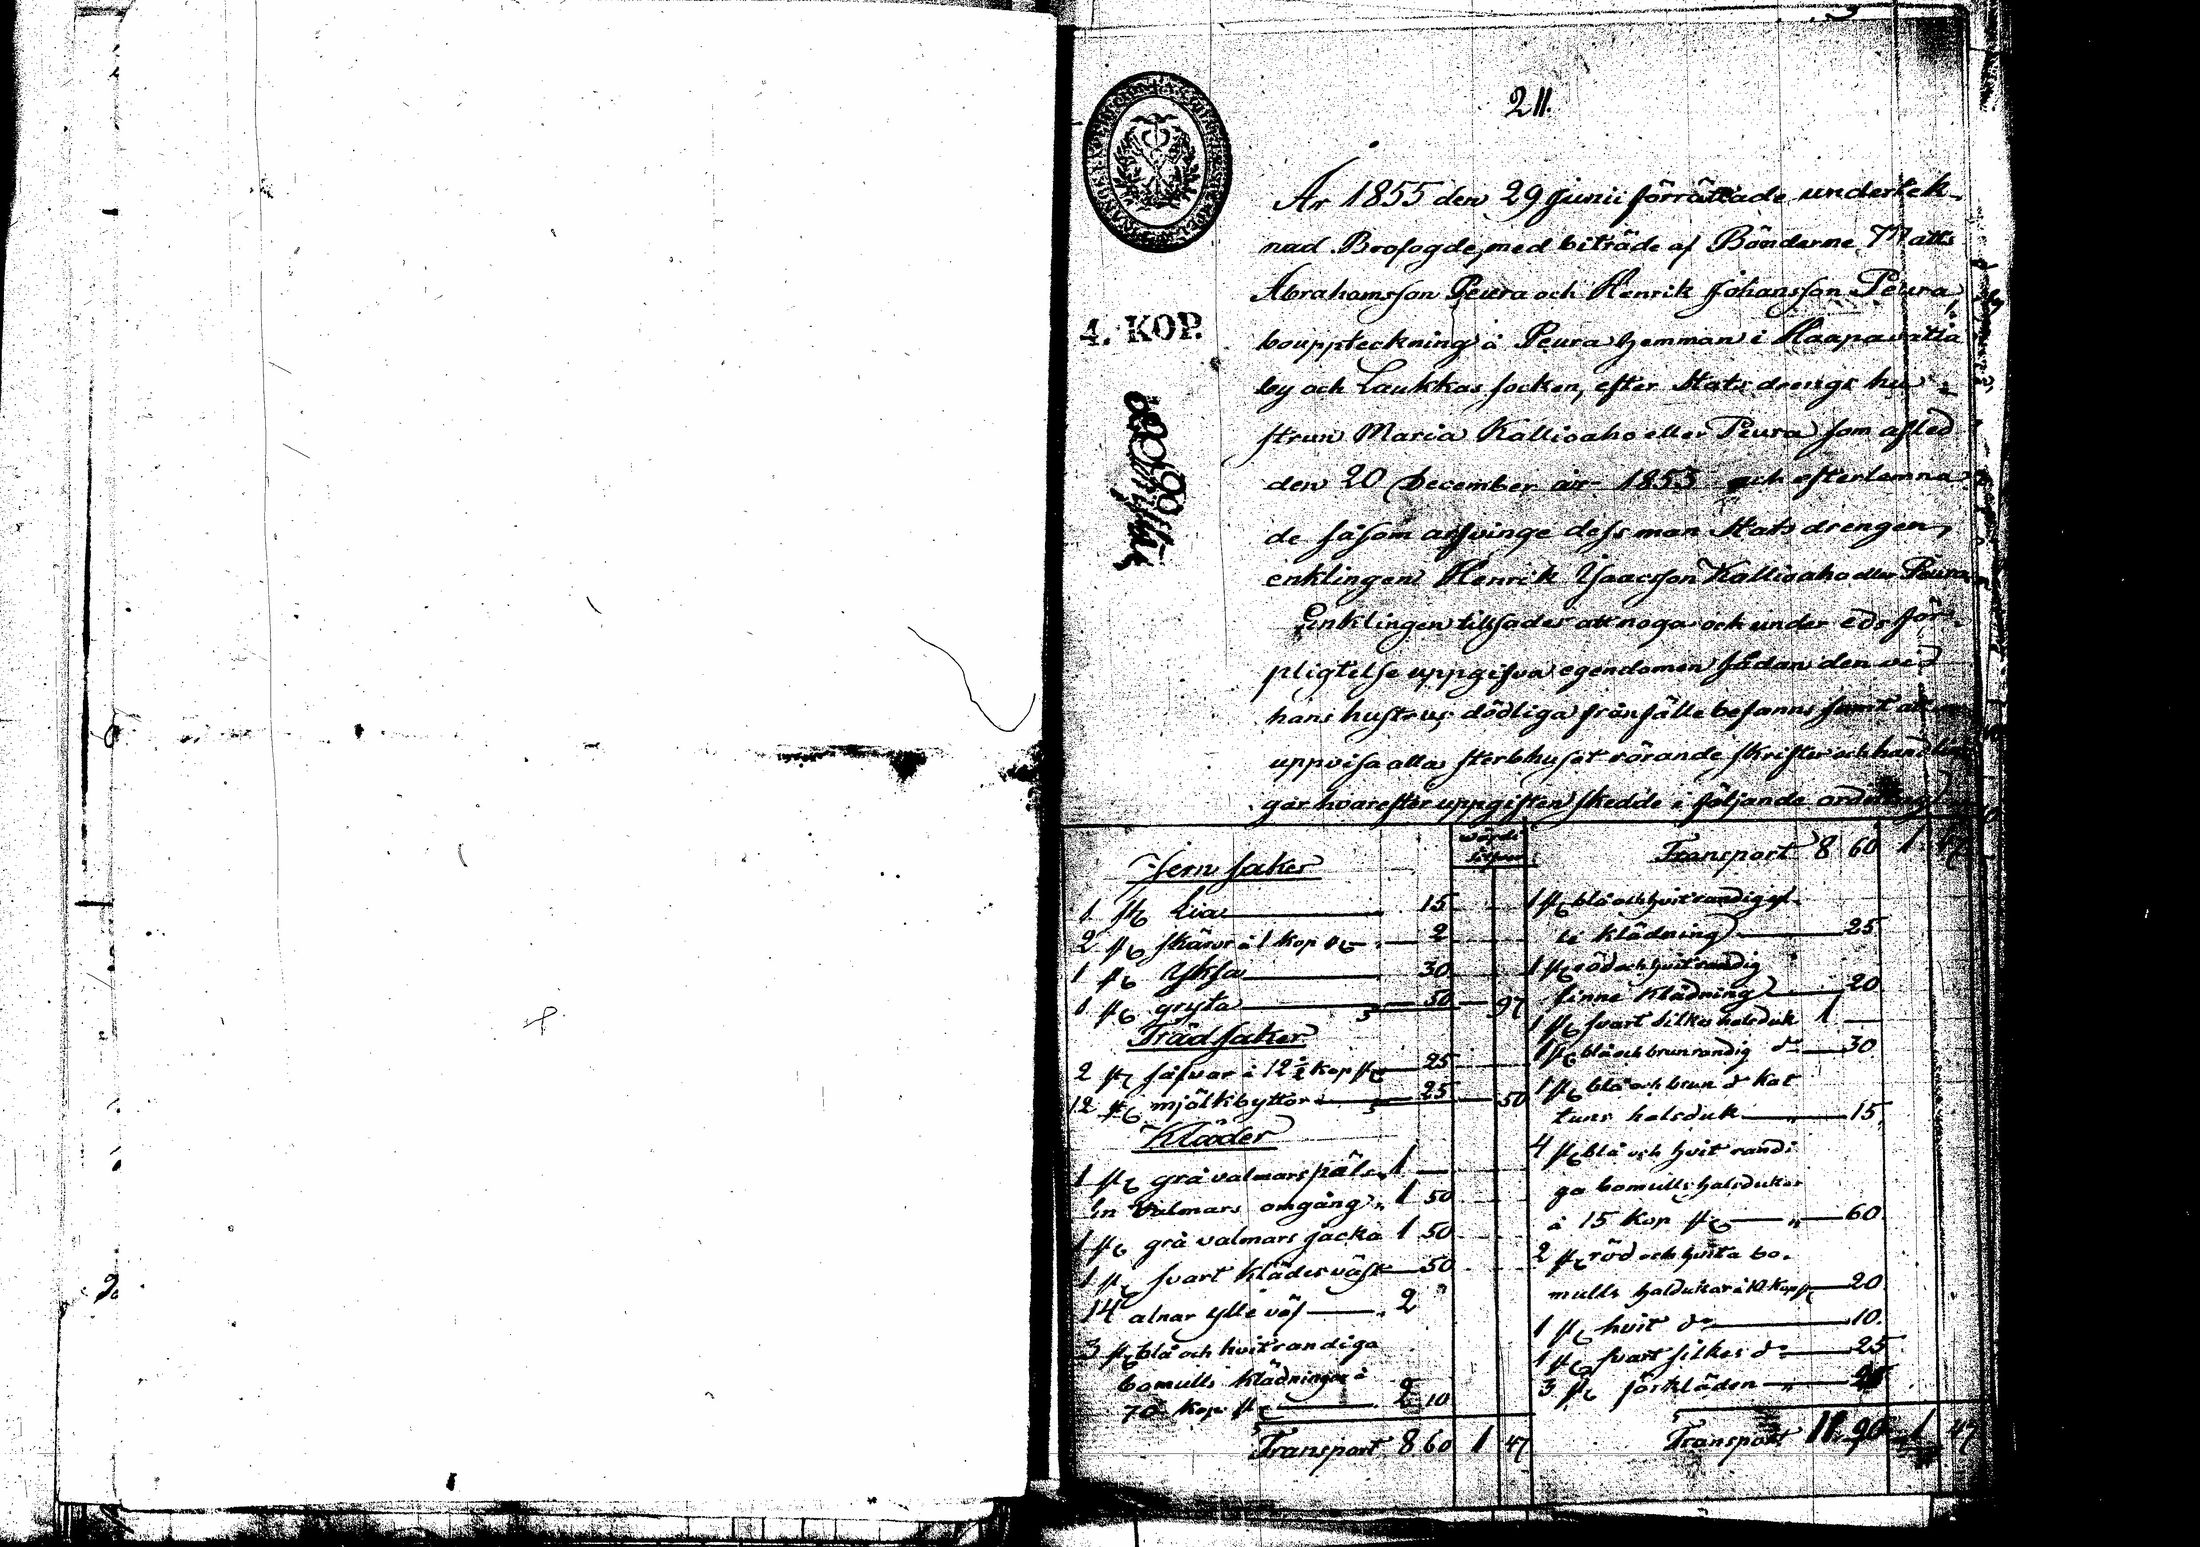 211.
4. KOP.
År 1855 den 29 Junii förrättade undertek-
nad Brofogde, med biträde af Bönderne Matts
Abrahamsson Peura och Henrik Johansson Peura,
bouppteckning å Peura hemman i Haapavatia
by och Laukkas socken, efter Statsdrengs hu-
strun Maria Kallioaho eller Peura som afled
den 20 December år 1853 och efterlemna-
de såsom arfvinge dess man Statsdrengen,
enklingen Henrik Isaacsson Kallioaho eller Peura
Enklingen tillsades att noga och under eds för-
pligtelse uppgifva egendomen sådan den vid
hans hustrus dödliga frånfälle befanns samt att
uppvisa alla sterbhuset rörande skrifter och handlin-
gar hvarefter uppgiften skedde i följande ordning
Jern saker
1 st Lia 15
2 st skäror à 1 kop st 2
1 st yksa 30
1 st gryta 50 97
Träd saker
2 st såfvar à 12 ½ kop st 25
12 st mjölkbyttor 25 50
Kläder
1 st grå valmars päls 1
En Valmars omgång 1 50
1 st grå valmars jacka 1 50
1 st svart klädes väst 50
14 alnar ylle väf 2
3 st blå och hvitrandiga
bomulls klädningar à
70 kop st 2 10
Transport 8 60 1 47
Transport 8 60 1 47
1 st blå och hvitrandig yl-
le klädning 25
1 st röd och hvitrandig
linne klädning 20
1 st svart silkes halsduk 1
1 st blå och brunrandig do 30
1 st blå och brun do Kat
tuns halsduk 15
4 st blå och hvit randi
ga bomulls halsdukar
à 15 Kop st 60
2 st röd och hvita bo-
mulls halsdukar à 10 Kop st 20
1 st hvit do 10
1 st svart silkes do 25
3 st förkläden
Transport 11 90 1 47